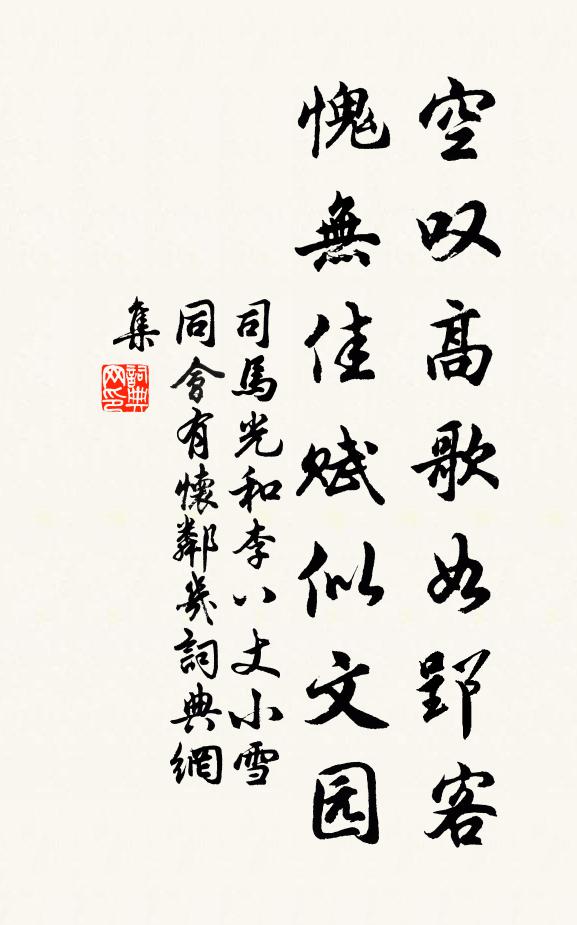 空叹高歌如郢客
愧無佳赋似文园
司馬光和李八丈小雪
同會有懷鄰幾詞典網
集
詞典
网印